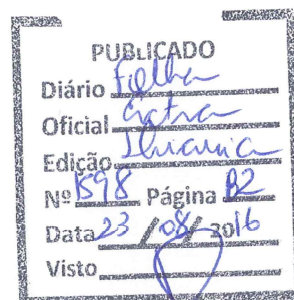 PUBLICADO
Diário Folha
Oficial Extra
Edição
Nº 1598 Página B2
Data 23 / 08 / 2016
Visto